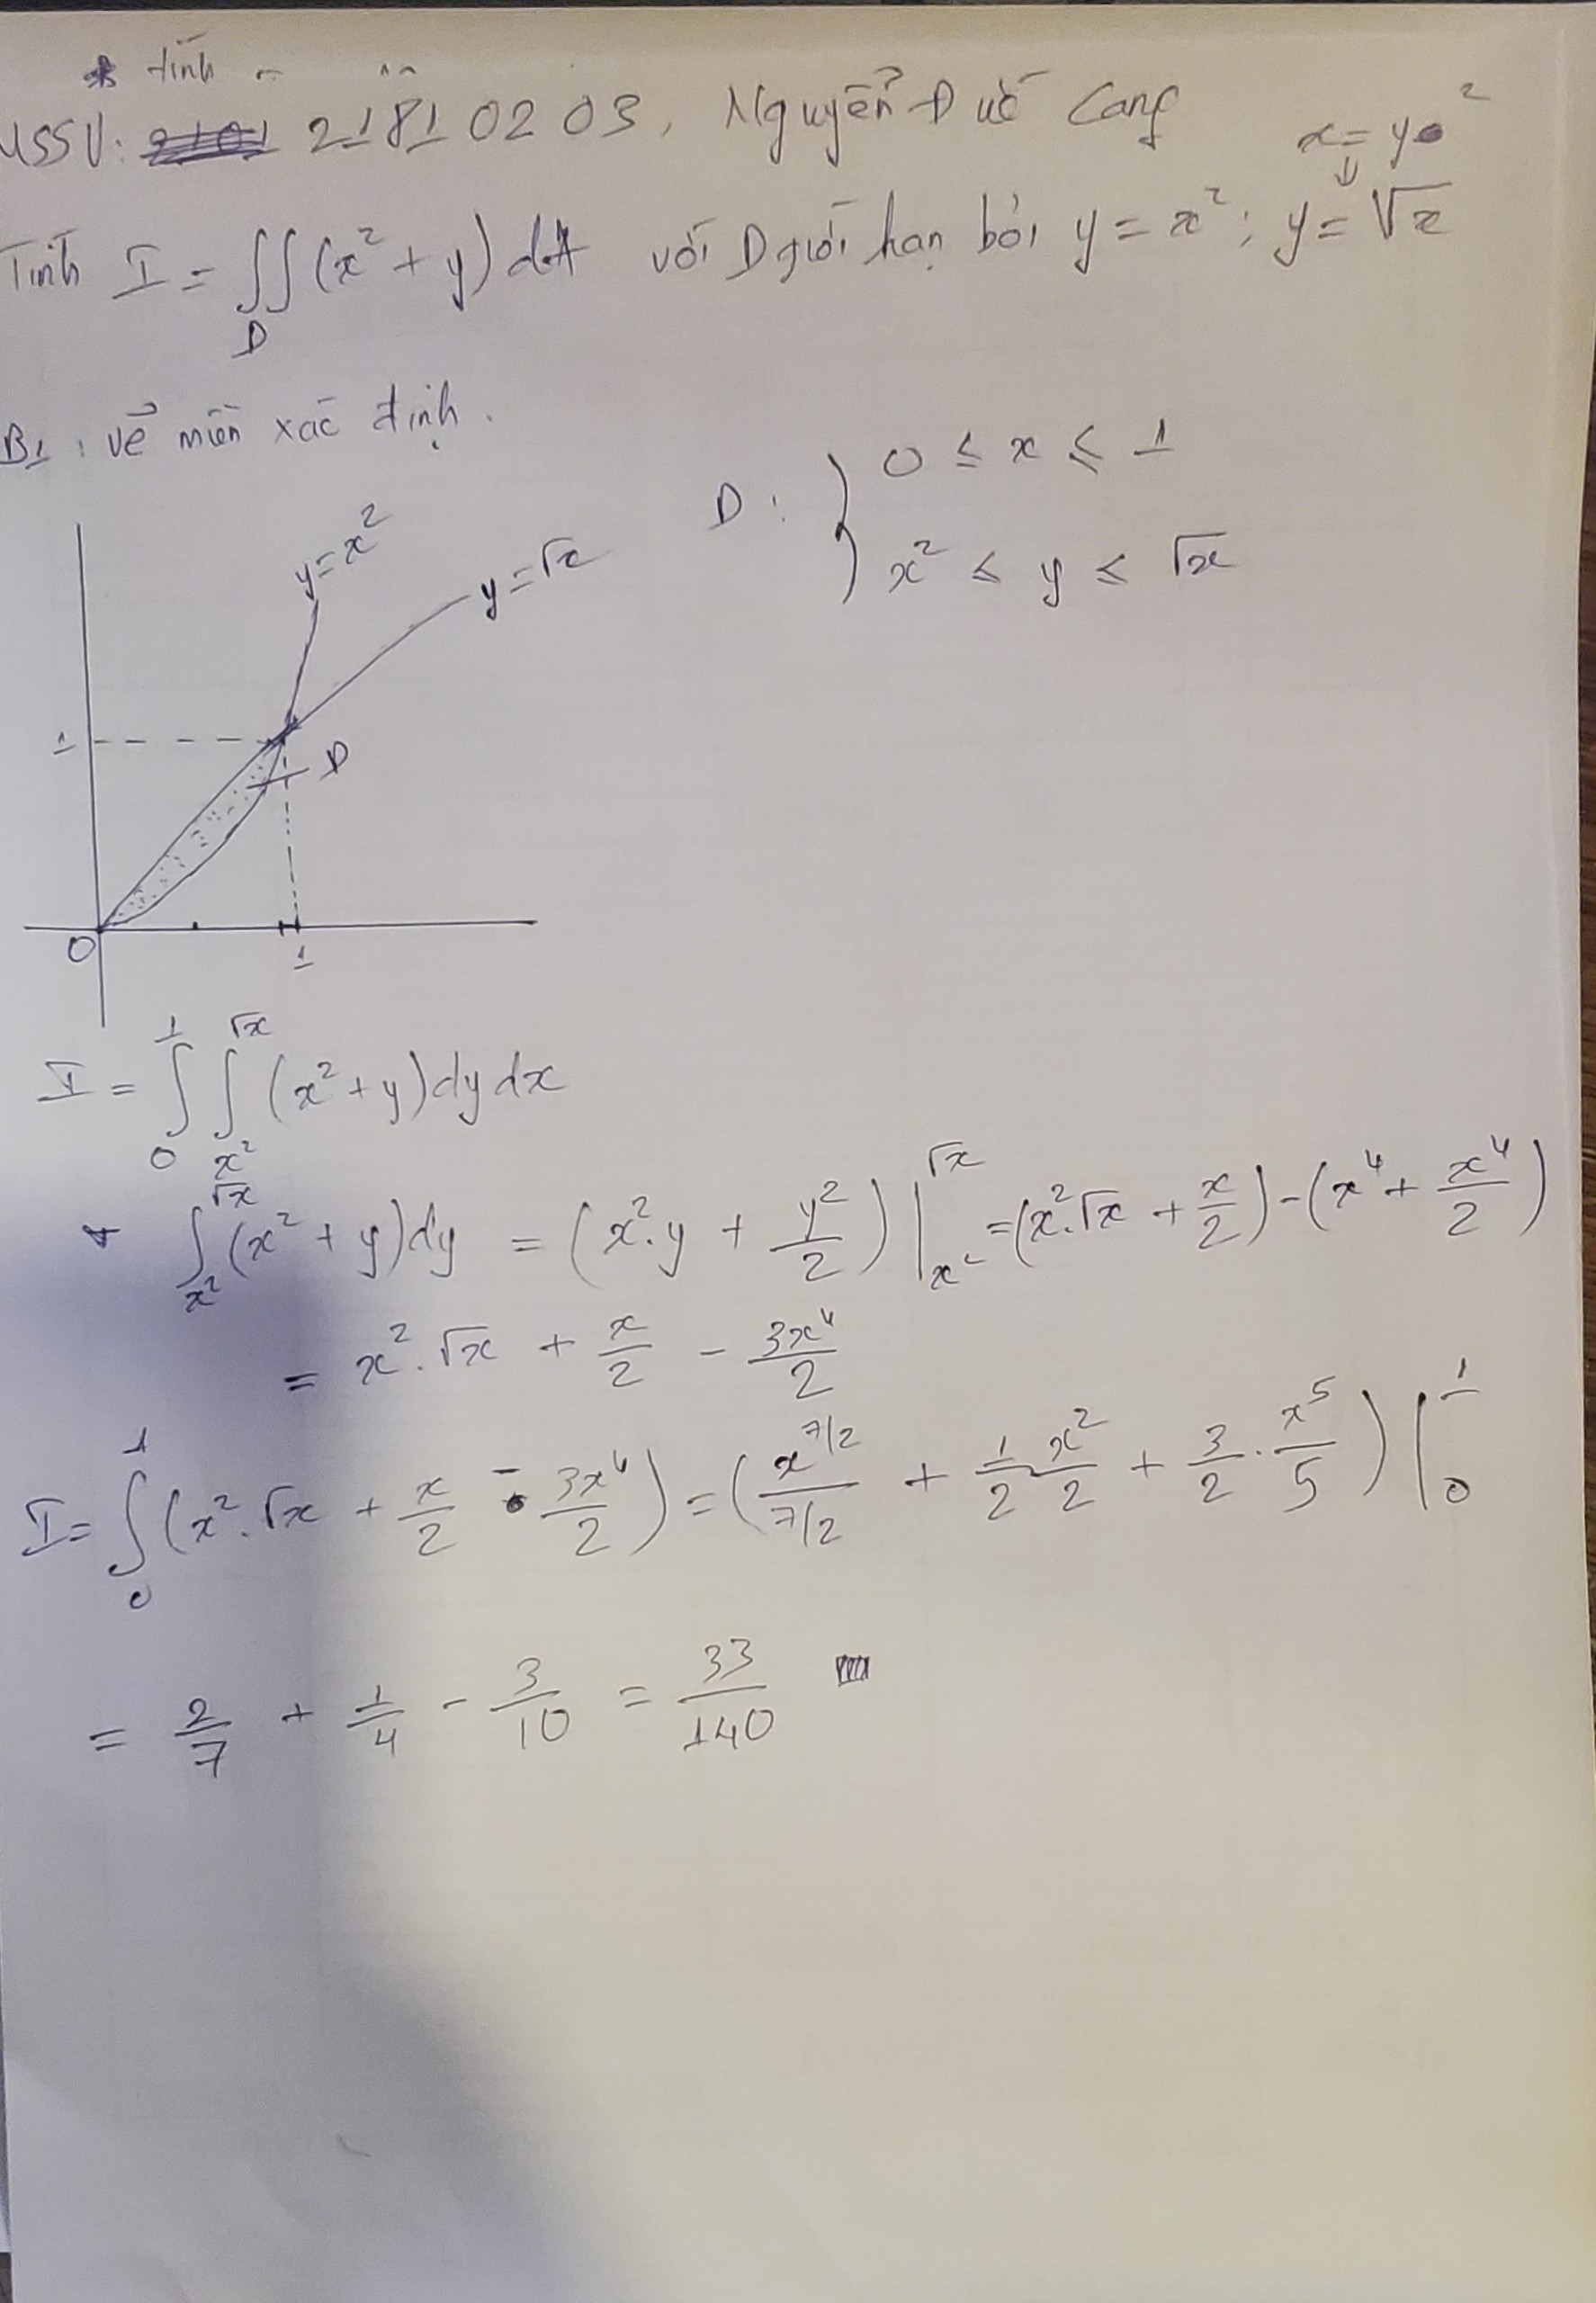 * tính
MSSV: 21810203, Nguyễn Đức Cang
x = y²
Tính I = ∬ (x² + y) dA với D giới hạn bởi y = x² ; y = √x
D
B1 : vẽ miền xác định.
D : { 0 ≤ x ≤ 1
x² ≤ y ≤ √x
y = x²
y = √x
1
D
O
1
I = ∫₀¹ ∫_{x²}^{√x} (x² + y) dy dx
* ∫_{x²}^{√x} (x² + y) dy = (x².y + y²/2) |_{x²}^{√x} = (x².√x + x/2) - (x⁴ + x⁴/2)
= x².√x + x/2 - 3x⁴/2
I = ∫₀¹ (x².√x + x/2 - 3x⁴/2) = (x^{7/2}/7/2 + 1/2 x²/2 + 3/2 . x⁵/5) |₀¹
= 2/7 + 1/4 - 3/10 = 33/140